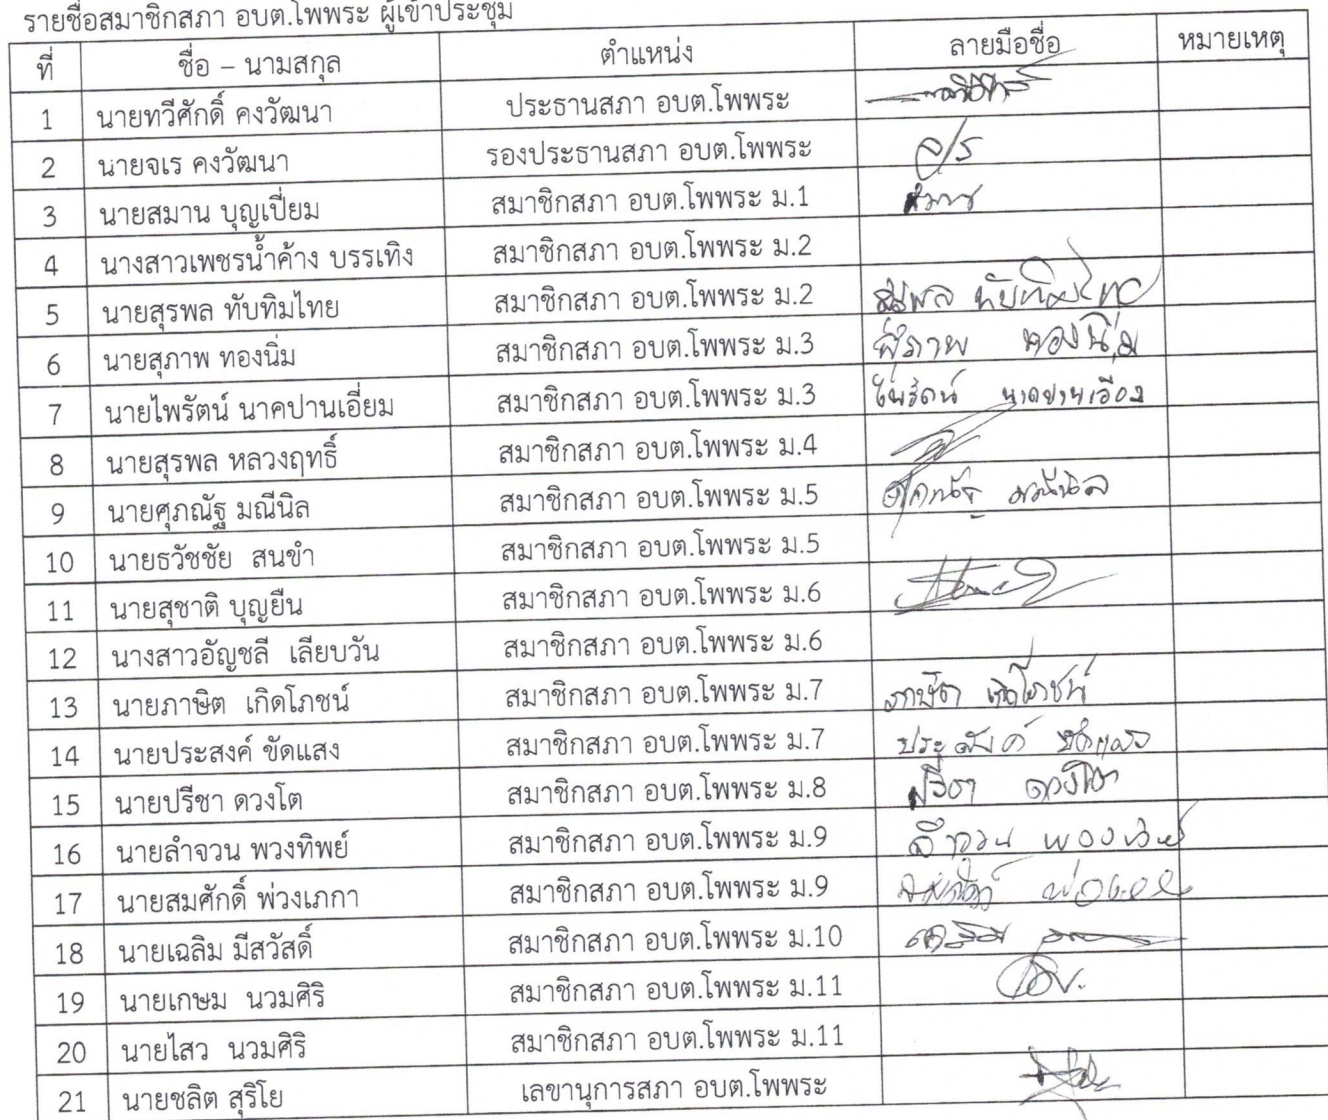 รายชื่อสมาชิกสภา อบต.โพพระ ผู้เข้าประชุม
ที่ ชื่อ – นามสกุล ตำแหน่ง ลายมือชื่อ หมายเหตุ
1 นายทวีศักดิ์ คงวัฒนา ประธานสภา อบต.โพพระ
2 นายจเร คงวัฒนา รองประธานสภา อบต.โพพระ
3 นายสมาน บุญเปี่ยม สมาชิกสภา อบต.โพพระ ม.1
4 นางสาวเพชรน้ำค้าง บรรเทิง สมาชิกสภา อบต.โพพระ ม.2
5 นายสุรพล ทับทิมไทย สมาชิกสภา อบต.โพพระ ม.2 สุรพล ทับทิมไทย
6 นายสุภาพ ทองนิ่ม สมาชิกสภา อบต.โพพระ ม.3 สุภาพ ทองนิ่ม
7 นายไพรัตน์ นาคปานเอี่ยม สมาชิกสภา อบต.โพพระ ม.3 ไพรัตน์ นาคปานเอี่ยม
8 นายสุรพล หลวงฤทธิ์ สมาชิกสภา อบต.โพพระ ม.4
9 นายศุภณัฐ มณีนิล สมาชิกสภา อบต.โพพระ ม.5 ศุภณัฐ มณีนิล
10 นายธวัชชัย สนขำ สมาชิกสภา อบต.โพพระ ม.5
11 นายสุชาติ บุญยืน สมาชิกสภา อบต.โพพระ ม.6
12 นางสาวอัญชลี เลียบวัน สมาชิกสภา อบต.โพพระ ม.6
13 นายภาษิต เกิดโภชน์ สมาชิกสภา อบต.โพพระ ม.7 ภาษิต เกิดโภชน์
14 นายประสงค์ ขัดแสง สมาชิกสภา อบต.โพพระ ม.7 ประสงค์ ขัดแสง
15 นายปรีชา ดวงโต สมาชิกสภา อบต.โพพระ ม.8 ปรีชา ดวงโต
16 นายลำจวน พวงทิพย์ สมาชิกสภา อบต.โพพระ ม.9 ลำจวน พวงทิพย์
17 นายสมศักดิ์ พ่วงเภกา สมาชิกสภา อบต.โพพระ ม.9 สมศักดิ์
18 นายเฉลิม มีสวัสดิ์ สมาชิกสภา อบต.โพพระ ม.10 เฉลิม
19 นายเกษม นวมศิริ สมาชิกสภา อบต.โพพระ ม.11
20 นายไสว นวมศิริ สมาชิกสภา อบต.โพพระ ม.11
21 นายชลิต สุริโย เลขานุการสภา อบต.โพพระ